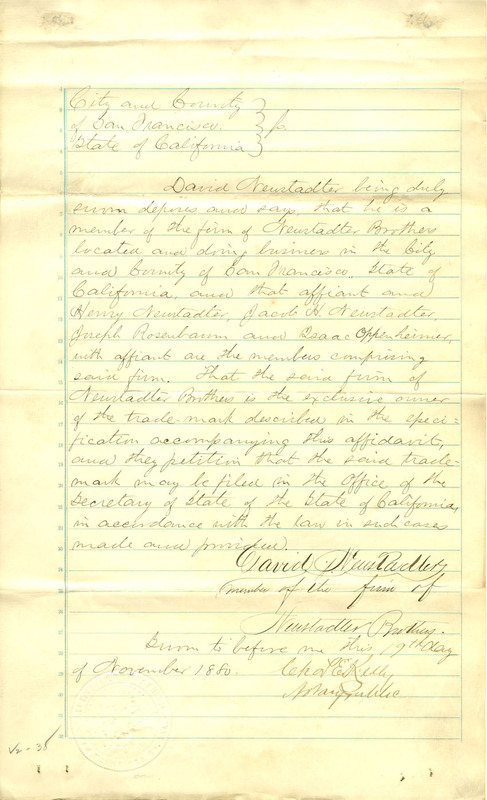 City and County }
of San Francisco. } ss
State of California }
David Neustadter being duly
sworn deposes and says that he is a
member of the firm of Neustadter Brothers
located and doing business in the City
and County of San Francisco, State of
California, and that affiant and
Henry Neustadter, Jacob H. Neustadter,
Joseph Rosenbaum and Isaac Oppenheimer,
with affiant are the members comprising
said firm. That the said firm of
Neustadter Brothers is the exclusive owner
of the trade-mark described in the speci=
fication accompanying this affidavit,
and they petition that the said trade-
mark may be filed in the Office of the
Secretary of State of the State of California,
in accordance with the law in such cases
made and provided.
David Neustadter
member of the firm of
Neustadter Brothers.
Sworn to before me this 19th day
of November 1880.
Kelly
Notary Public